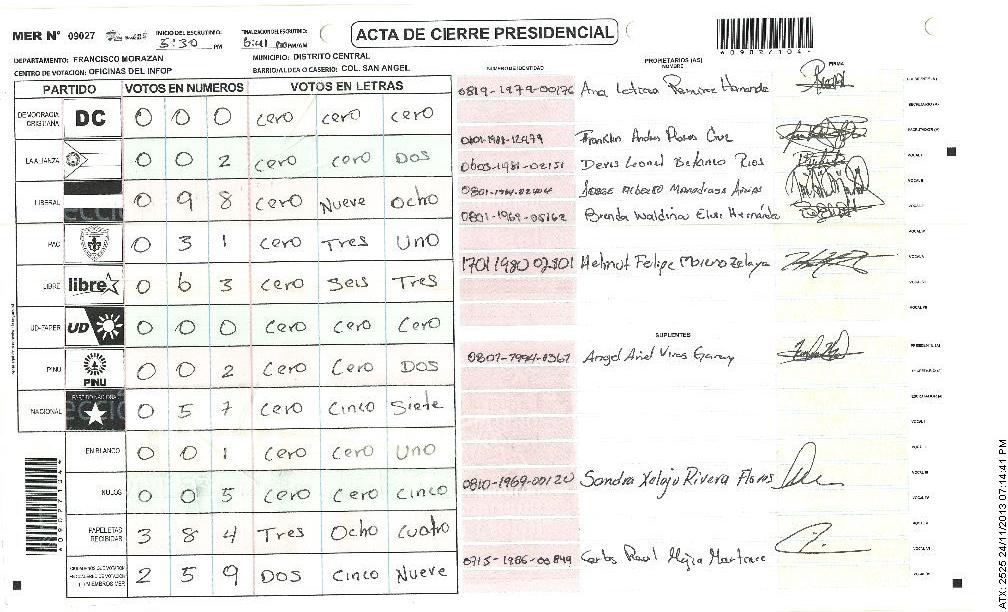 MER N° 09027
INICIO DEL ESCRUTINIO: 5:30 PM
FINALIZACION DEL ESCRUTINIO: 6:41 PM/AM
ACTA DE CIERRE PRESIDENCIAL
DEPARTAMENTO: FRANCISCO MORAZAN
MUNICIPIO: DISTRITO CENTRAL
CENTRO DE VOTACION: OFICINAS DEL INFOP
BARRIO/ALDEA O CASERIO: COL. SAN ANGEL
PARTIDO VOTOS EN NUMEROS VOTOS EN LETRAS
DEMOCRACIA CRISTIANA DC 0 0 0 cero cero cero
LA ALIANZA 0 0 2 cero cero DOS
LIBERAL 0 9 8 cero Nueve ocho
PAC 0 3 1 cero Tres Uno
LIBRE libre 0 6 3 cero Seis Tres
UD-FAPER UD 0 0 0 cero cero cero
PINU PNU 0 0 2 cero cero DOS
NACIONAL 0 5 7 cero cinco siete
EN BLANCO 0 0 1 cero cero Uno
NULOS 0 0 5 cero cero cinco
PAPELETAS RECIBIDAS 3 8 4 Tres Ocho cuatro
2 5 9 DOS cinco Nueve
NUMERO DE IDENTIDAD
PROPIETARIOS (AS)
NOMBRE
FIRMA
0819-1979-00176 Ana Leticia Ramirez
Franklin Andres Flores Cruz
0605-1981-02151 Denis Leonel Betanco Rios
Jorge Alberto
0801-1969-05162 Brenda Waldina Hernández
1701 1980 02801 Helmut Felipe Moreno Zelaya
SUPLENTES
Angel Ariel
0810-1969-00120 Sandra Xelaju Rivera Flores
0715-1986-00849 Carlos Raul Mejia Martinez
ATX: 2525 24/11/2013 07:14:41 PM